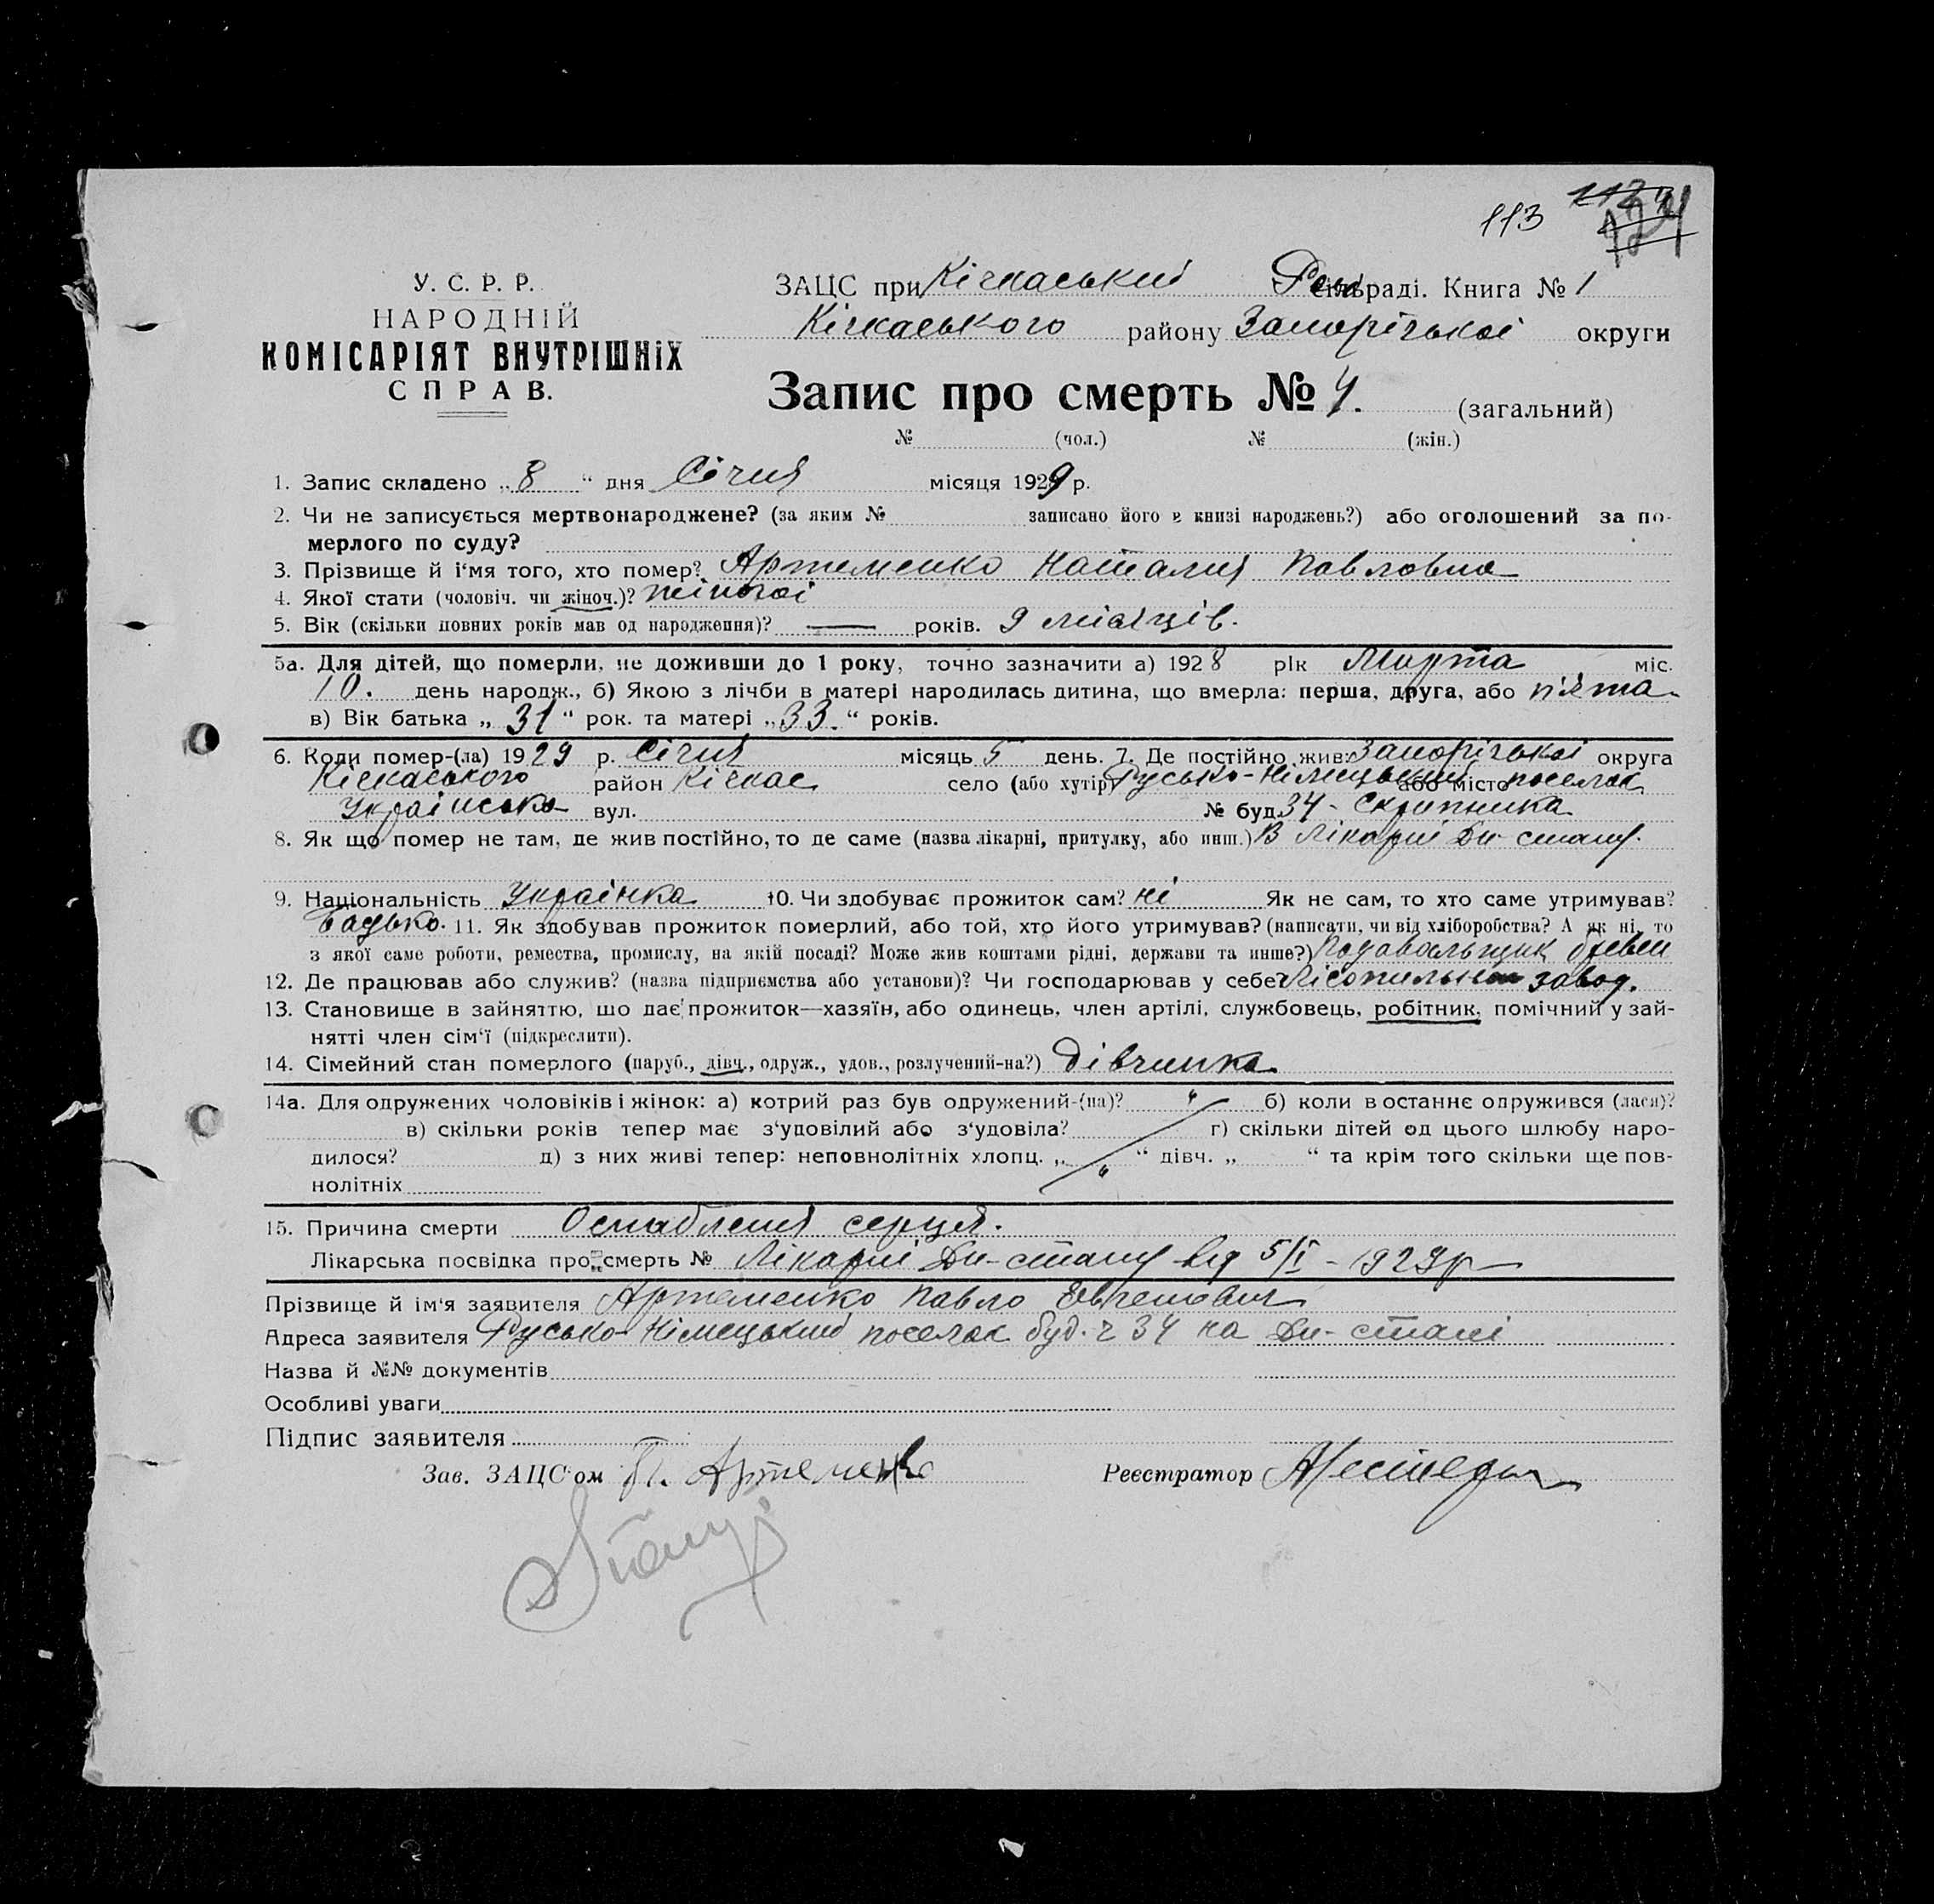 113
У. С. Р. Р.
НАРОДНІЙ
КОМІСАРІЯТ ВНУТРІШНІХ
СПРАВ.
ЗАЦС при Кічкаський сільраді. Книга № 1
Кічкаського району Запорізької округи
Запис про смерть № 4. (загальний)
№ (чол.) № (жін.)
1. Запис складено „ 8 “ дня Січня місяця 1929 р.
2. Чи не записується мертвонароджене? (за яким № записано його в книзі народжень?) або оголошений за по-
мерлого по суду?
3. Прізвище й і'мя того, хто помер? Артеменко Наталия Павловна
4. Якої стати (чоловіч. чи жіноч.)? жіночої
5. Вік (скільки повних років мав од народження)? — років. 9 місяців.
5а. Для дітей, що померли, не доживши до 1 року, точно зазначити а) 1928 рік Марта міс.
10. день народж., б) Якою з лічби в матері народилась дитина, що вмерла: перша, друга, або п'ята
в) Вік батька „ 31 “ рок. та матері „ 33. “ років.
6. Коли помер-(ла) 1929 р. Січня місяць 5 день. 7. Де постійно жив: Запорізької округа
Кічкаського район Кічкас село (або хутір) Русько-Німецький або місто поселок
Українсько вул. № буд. 34 - Скрипника
8. Як що помер не там, де жив постійно, то де саме (назва лікарні, притулку, або инш.) В Лікарні Дн-стану.
9. Національність Українка 10. Чи здобуває прожиток сам? ні Як не сам, то хто саме утримував?
Бадько. 11. Як здобував прожиток померлий, або той, хто його утримував? (написати, чи від хліборобства? А як ні, то
з якої саме роботи, ремества, промислу, на якій посаді? Може жив коштами рідні, держави та инше?) Подавальщик бревен
12. Де працював або служив? (назва підприємства або установи)? Чи господарював у себе? Лісопильн завод.
13. Становище в зайняттю, що дає прожиток—хазяїн, або одинець, член артілі, службовець, робітник, помічний у зай-
нятті член сім'ї (підкреслити).
14. Сімейний стан померлого (паруб., дівч., одруж., удов., розлучений-на?) дівчинка
14а. Для одружених чоловіків і жінок: а) котрий раз був одружений-(на)? б) коли востаннє одружився (лася)?
в) скільки років тепер має з'удовілий або з'удовіла? г) скільки дітей од цього шлюбу наро-
дилося? д) з них живі тепер: неповнолітніх хлопц. „ “ дівч. „ “ та крім того скільки ще пов-
нолітніх
15. Причина смерти Ослаблення серця.
Лікарська посвідка про смерть № Лікарні Дн-стану від 5/I - 1929р
Прізвище й ім'я заявителя Артеменко Павло Евгенович
Адреса заявителя Русько-Німецький поселок буд. ч 34 на Дн-стані
Назва й №№ документів
Особливі уваги
Підпис заявителя
Зав. ЗАЦС'ом П. Артеменко Реєстратор